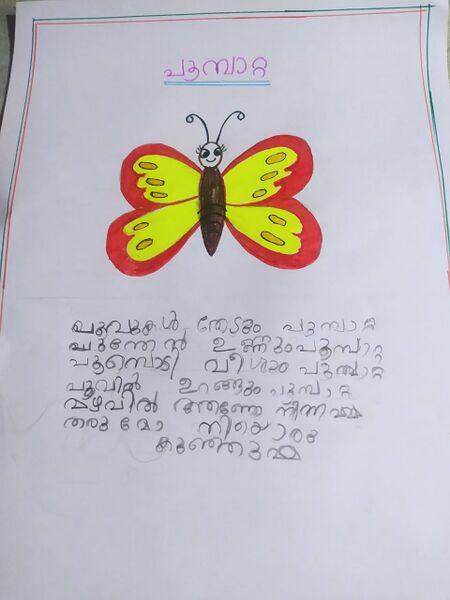 പൂമ്പാറ്റ
പൂവുകൾ തേടും പൂമ്പാറ്റ
പൂന്തേൻ ഉണ്ണും പൂമ്പാറ്റ
പൂമ്പൊടി വീശും പൂമ്പാറ്റ
പൂവിൽ ഉറങ്ങും പൂമ്പാറ്റ
മഴവിൽ അണ്ണേ നിന്നമ്മ
തരുമോ നിയൊരു
കുഞ്ഞുമ്മ